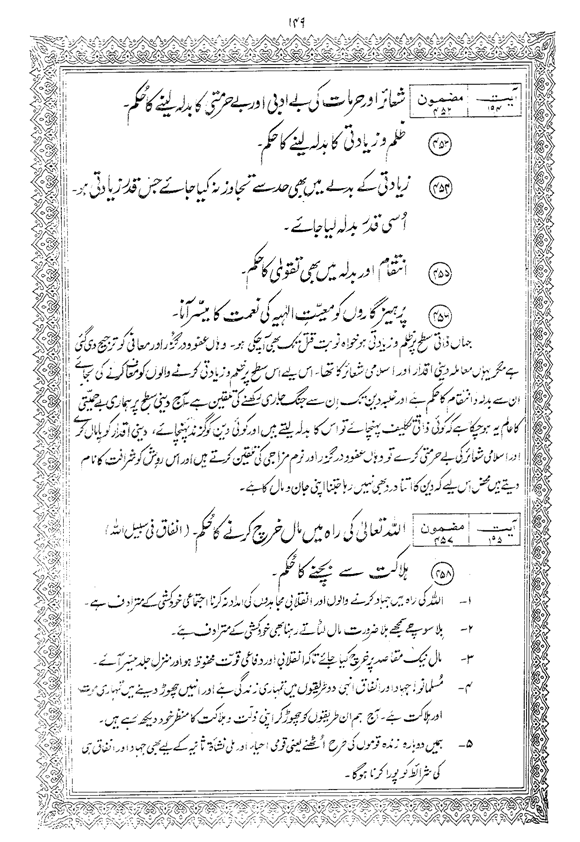 ۱۴۹
آیت ۱۹۴ مضمون ۴۵۲ شعائر اور حرمات کی بے ادبی اور بے حرمتی کا بدلہ لینے کا حُکم۔
(۴۵۳) ظلم و زیادتی کا بدلہ لینے کا حکم۔
(۴۵۴) زیادتی کے بدلے میں بھی حد سے تجاوز نہ کیا جائے جس قدر زیادتی ہو۔
اُسی قدر بدلہ لیا جائے۔
(۴۵۵) انتقام اور بدلہ میں بھی تقویٰ کا حکم۔
(۴۵۶) پرہیزگاروں کو معیتِ الٰہیہ کی نعمت کا میسّر آنا۔
جہاں ذاتی سطح پر ظلم و زیادتی ہو خواہ نوبت قتل تک بھی آ چکی ہو۔ وہاں عفو و درگزر اور معافی کو ترجیح دی گئی
ہے مگر یہاں معاملہ دینی اقدار اور اسلامی شعائر کا تھا۔ اس لیے اس سطح پر ظلم و زیادتی کرنے والوں کو معاف کرنے کی بجائے
ان سے بدلہ و انتقام کا حکم ہے اور غلبہ دین تک اِن سے جنگ جاری رکھنے کی تلقین ہے۔ آج دینی سطح پر ہماری بے حمیتی
کا عالم یہ ہو چکا ہے کہ کوئی ذاتی تکلیف پہنچائے تو اس کا بدلہ لیتے ہیں اور کوئی دین کو گزند پہنچائے، دینی اقدار کو پامال کرے
اور اسلامی شعائر کی بے حرمتی کرے تو وہاں عفو و درگزر اور نرم مزاجی کی تلقین کرتے ہیں اور اس روش کو شرافت کا نام
دیتے ہیں محض اس لیے کہ دین کا اتنا درد بھی نہیں رہا جتنا اپنی جان و مال کا ہے۔
آیت ۱۹۵ مضمون ۴۵۷ اللہ تعالیٰ کی راہ میں مال خرچ کرنے کا حُکم۔ (انفاق فی سبیل اللہ)
(۴۵۸) ہلاکت سے بچنے کا حُکم۔
۱- اللہ کی راہ میں جہاد کرنے والوں اور انقلابی مجاہدوں کی امداد نہ کرنا اجتماعی خودکشی کے مترادف ہے۔
۲- بلا سوچے سمجھے بلا ضرورت مال لٹاتے رہنا بھی خودکشی کے مترادف ہے۔
۳- مال نیک مقاصد پر خرچ کیا جائے تاکہ انقلابی اور دفاعی قوت محفوظ ہو اور منزل جلد میسر آئے۔
۴- مُسلمانو! جہاد اور انفاق انہی دو طریقوں میں تمہاری زندگی ہے اور انہیں چھوڑ دینے میں تمہاری موت
اور ہلاکت ہے۔ آج ہم ان طریقوں کو چھوڑ کر اپنی ذلت و ہلاکت کا منظر خود دیکھ رہے ہیں۔
۵- ہمیں دوبارہ زندہ قوموں کی طرح اُٹھنے یعنی قومی احیاء اور ملی نشاۃ ثانیہ کے لیے بھی جہاد اور انفاق ہی
کی شرائط کو پورا کرنا ہوگا۔